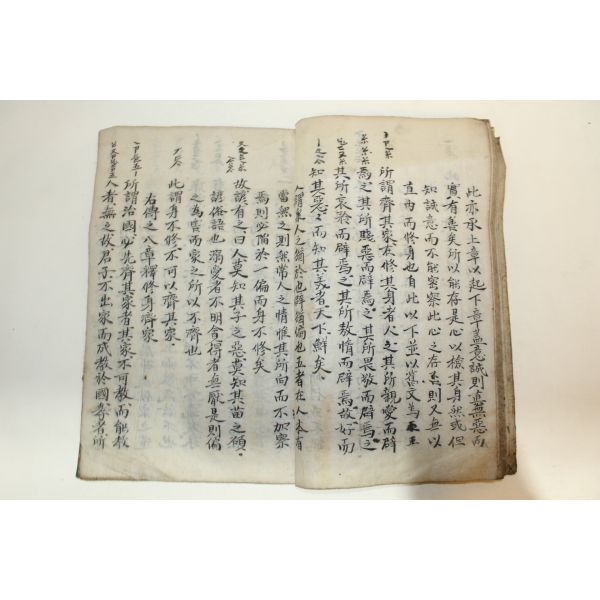 此亦承上章以起下章盖意誠則眞無惡而
實有善矣所以能存是心以檢其身然或但
知誠意而不能密察此心之存否則又無以
直內而修身也自此以下並以舊文爲正
所謂齊其家在修其身者人之其所親愛而辟
焉之其所賤惡而辟焉之其所畏敬而辟焉之
其所哀矜而辟焉之其所敖惰而辟焉故好而
知其惡惡而知其美者天下鮮矣
人謂衆人之猶於也辟猶偏也五者在人本有
當然之則然常人之情惟其所向而不加察
焉則必陷於一偏而身不修矣
故諺有之曰人莫知其子之惡莫知其苗之碩
諺俗語也溺愛者不明貪得者無厭是則偏
之爲害而家之所以不齊也
此謂身不修不可以齊其家
右傳之八章釋修身齊家
所謂治國必先齊其家者其家不可教而能教
人者無之故君子不出家而成教於國孝者所